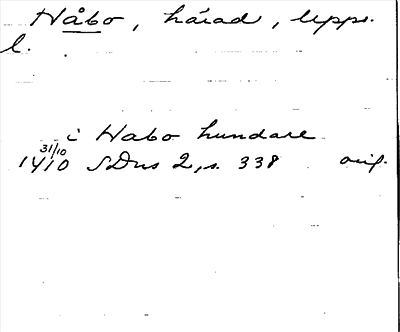 Håbo, härad, Upps.
l.
i Habo hundare
31/10
1410 SDns 2, s. 338 orig.